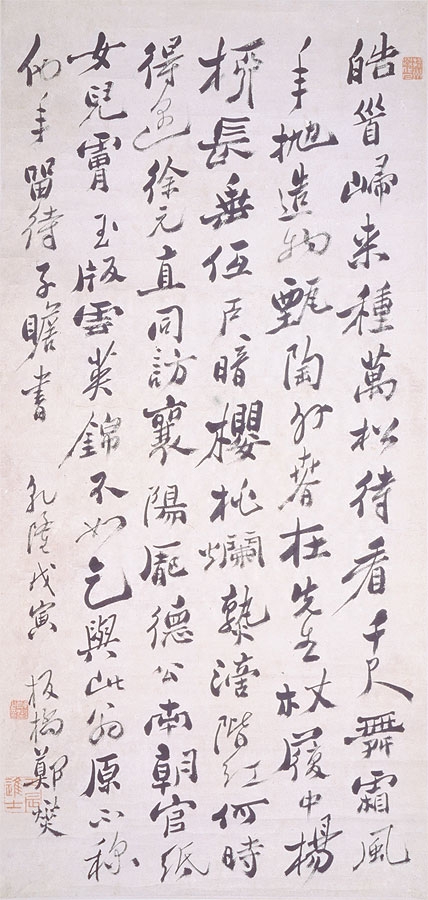 皓首歸来種萬松待看千尺舞霜風
年抛造物甄陶外春在先生杖履中楊
栁長垂低戶暗櫻桃爛熟滴階紅何時
得徐元直同訪襄陽龐德公南朝官紙
女兒膚玉版雲英錦不如乞與此翁原不稱
他年留待子瞻書 乾隆戊寅 板橋鄭燮